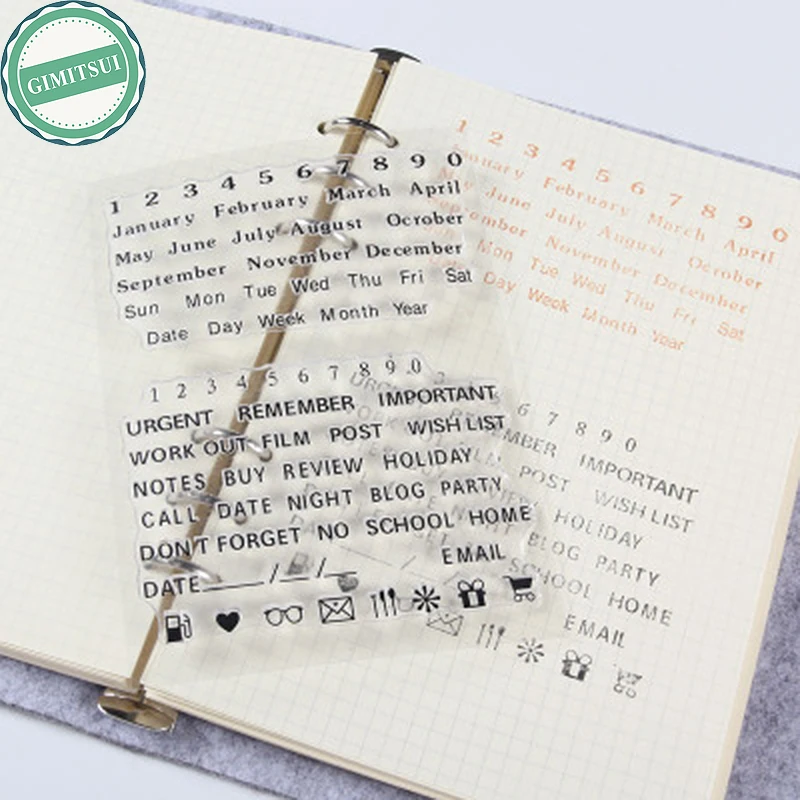 GIMITSUI
1 2 3 4 5 6 7 8 9 0
January February March April
May June July August October
September November December
Sun Mon Tue Wed Thu Fri Sat
Date Day Week Month Year
1 2 3 4 5 6 7 8 9 0
URGENT REMEMBER IMPORTANT
WORK OUT FILM POST WISH LIST
NOTES BUY REVIEW HOLIDAY
CALL DATE NIGHT BLOG PARTY
DON'T FORGET NO SCHOOL HOME
EMAIL
DATE_____/__/__
1 2 3 4 5 6 7 8 9 0
January February March April
May June July August October
September November December
Mon Tue Wed Thu Fri Sat
Day Week Month Year
6 7 8 9 0
IMPORTANT
POST WISH LIST
HOLIDAY
BLOG PARTY
SCHOOL HOME
EMAIL